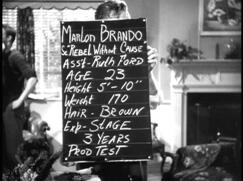 Marlon BRANDO
Rebel Without Cause
Asst- Ruth FORD
AGE 23
Height 5'-10"
Weight 170
HAIR- BROWN
Exp- STAGE
3 YEARS
PROD TEST